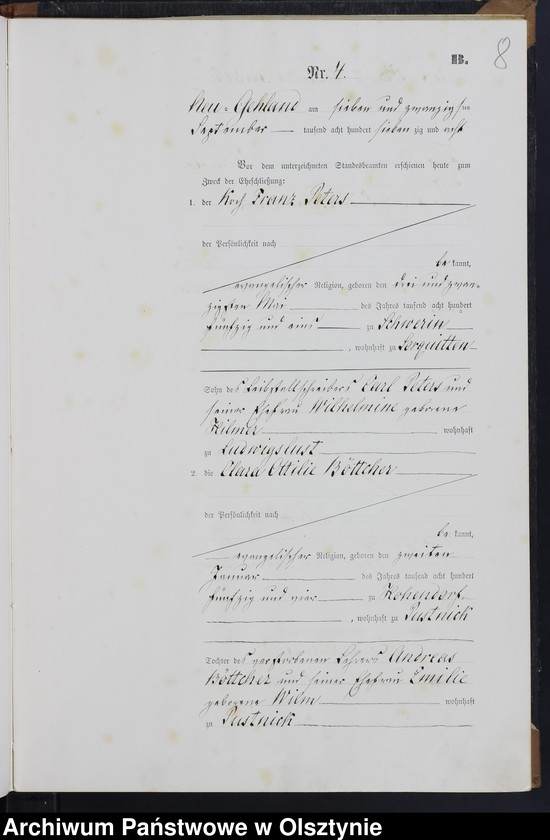 8
B.
Nr. 4.
Neu-Gehland am sieben und zwanzigsten
September tausend acht hundert siebenzig und acht
Vor dem unterzeichneten Standesbeamten erschienen heute zum
Zweck der Eheschließung:
1. der Koch Franz Peters
der Persönlichkeit nach
be kannt,
evangelischer Religion, geboren den drei und zwan-
zigsten Mai des Jahres tausend acht hundert
fünfzig und eins zu Schwerin
, wohnhaft zu Sorquitten
Sohn des Leibstallschreibers Carl Peters und
seiner Ehefrau Wilhelmine geborene
Hilmer wohnhaft
zu Ludwigslust
2. die Clara Ottilie Böttcher
der Persönlichkeit nach
be kannt,
evangelischer Religion, geboren den zweiten
Januar des Jahres tausend acht hundert
fünfzig und vier zu Hohendorf
, wohnhaft zu Pustnick
Tochter des verstorbenen Lehrers Andreas
Böttcher und seiner Ehefrau Emilie
geborene Wilm wohnhaft
zu Pustnick
Archiwum Państwowe w Olsztynie